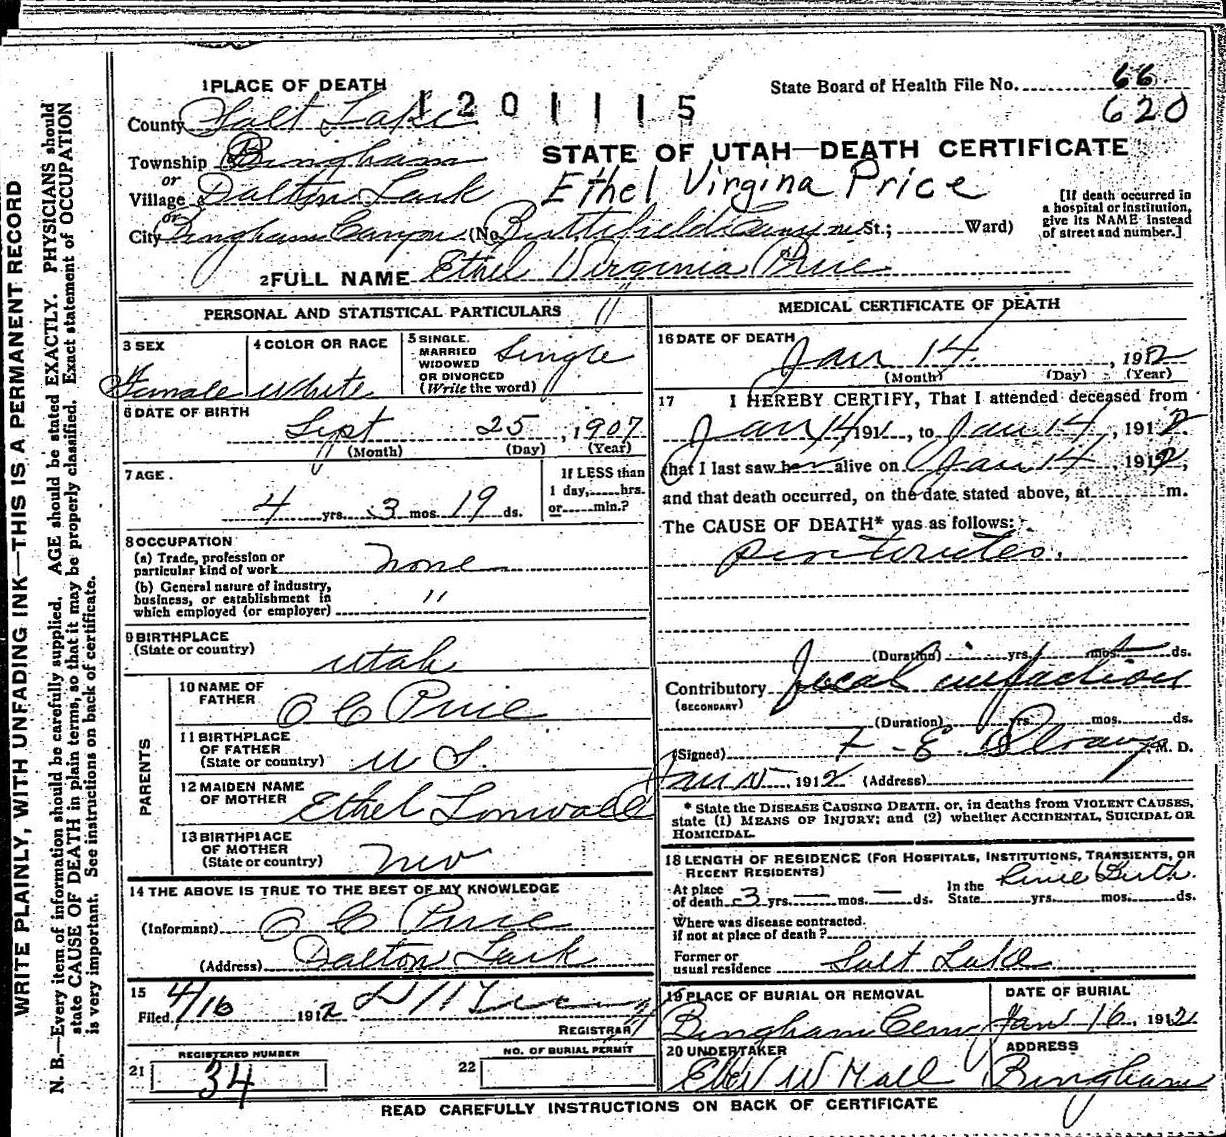 1 PLACE OF DEATH
State Board of Health File No. 66
620
1201115
County Salt Lake
Township Bingham
or
Village Dalton Lark
or
City Bingham Canyon (No. Butterfield Canyon St.; Ward)
STATE OF UTAH—DEATH CERTIFICATE
Ethel Virgina Price
[If death occurred in
a hospital or institution,
give its NAME instead
of street and number.]
2 FULL NAME Ethel Virginia Price
PERSONAL AND STATISTICAL PARTICULARS 11
3 SEX
Female
4 COLOR OR RACE
White
5 SINGLE.
MARRIED
WIDOWED
OR DIVORCED
(Write the word)
Single
6 DATE OF BIRTH
Sept 25, 1907
(Month) (Day) (Year)
7 AGE.
4 yrs. 3 mos. 19 ds.
If LESS than
1 day, hrs.
or min.?
8 OCCUPATION
(a) Trade, profession or
particular kind of work none
(b) General nature of industry,
business, or establishment in
which employed (or employer) "
9 BIRTHPLACE
(State or country)
Utah
PARENTS
10 NAME OF
FATHER
O C Price
11 BIRTHPLACE
OF FATHER
(State or country)
U S.
12 MAIDEN NAME
OF MOTHER
Ethel
13 BIRTHPLACE
OF MOTHER
(State or country)
14 THE ABOVE IS TRUE TO THE BEST OF MY KNOWLEDGE
(Informant) O C Price
(Address) Dalton Lark
15
Filed 4/16 1912
REGISTRAR
21
REGISTERED NUMBER
34
22
NO. OF BURIAL PERMIT
MEDICAL CERTIFICATE OF DEATH
16 DATE OF DEATH
Jan 14, 1912
(Month) (Day) (Year)
17 I HEREBY CERTIFY, That I attended deceased from
Jan 14 191, to Jan 14, 1912
that I last saw her alive on Jan 14 1912,
and that death occurred, on the date stated above, at m.
The CAUSE OF DEATH* was as follows:
(Duration) yrs. mos. ds.
Contributory Fecal
(SECONDARY)
(Duration) yrs. mos. ds.
(Signed) F. E. M. D.
Jan 1912 (Address)
* State the DISEASE CAUSING DEATH, or, in deaths from VIOLENT CAUSES,
state (1) MEANS OF INJURY; and (2) whether ACCIDENTAL, SUICIDAL OR
HOMICIDAL.
18 LENGTH OF RESIDENCE (FOR HOSPITALS, INSTITUTIONS, TRANSIENTS, OR
RECENT RESIDENTS)
At place
of death 3 yrs. — mos. — ds.
In the
State yrs. mos. ds.
Since Birth.
Where was disease contracted.
if not at place of death?
Former or
usual residence Salt Lake
19 PLACE OF BURIAL OR REMOVAL
Bingham Cem
DATE OF BURIAL
Jan 16, 1912
20 UNDERTAKER
Eber W Hall
ADDRESS
Bingham
READ CAREFULLY INSTRUCTIONS ON BACK OF CERTIFICATE
WRITE PLAINLY, WITH UNFADING INK—THIS IS A PERMANENT RECORD
N. B.—Every item of information should be carefully supplied. AGE should be stated EXACTLY. PHYSICIANS should
state CAUSE OF DEATH in plain terms, so that it may be properly classified. Exact statement of OCCUPATION
is very important. See instructions on back of certificate.